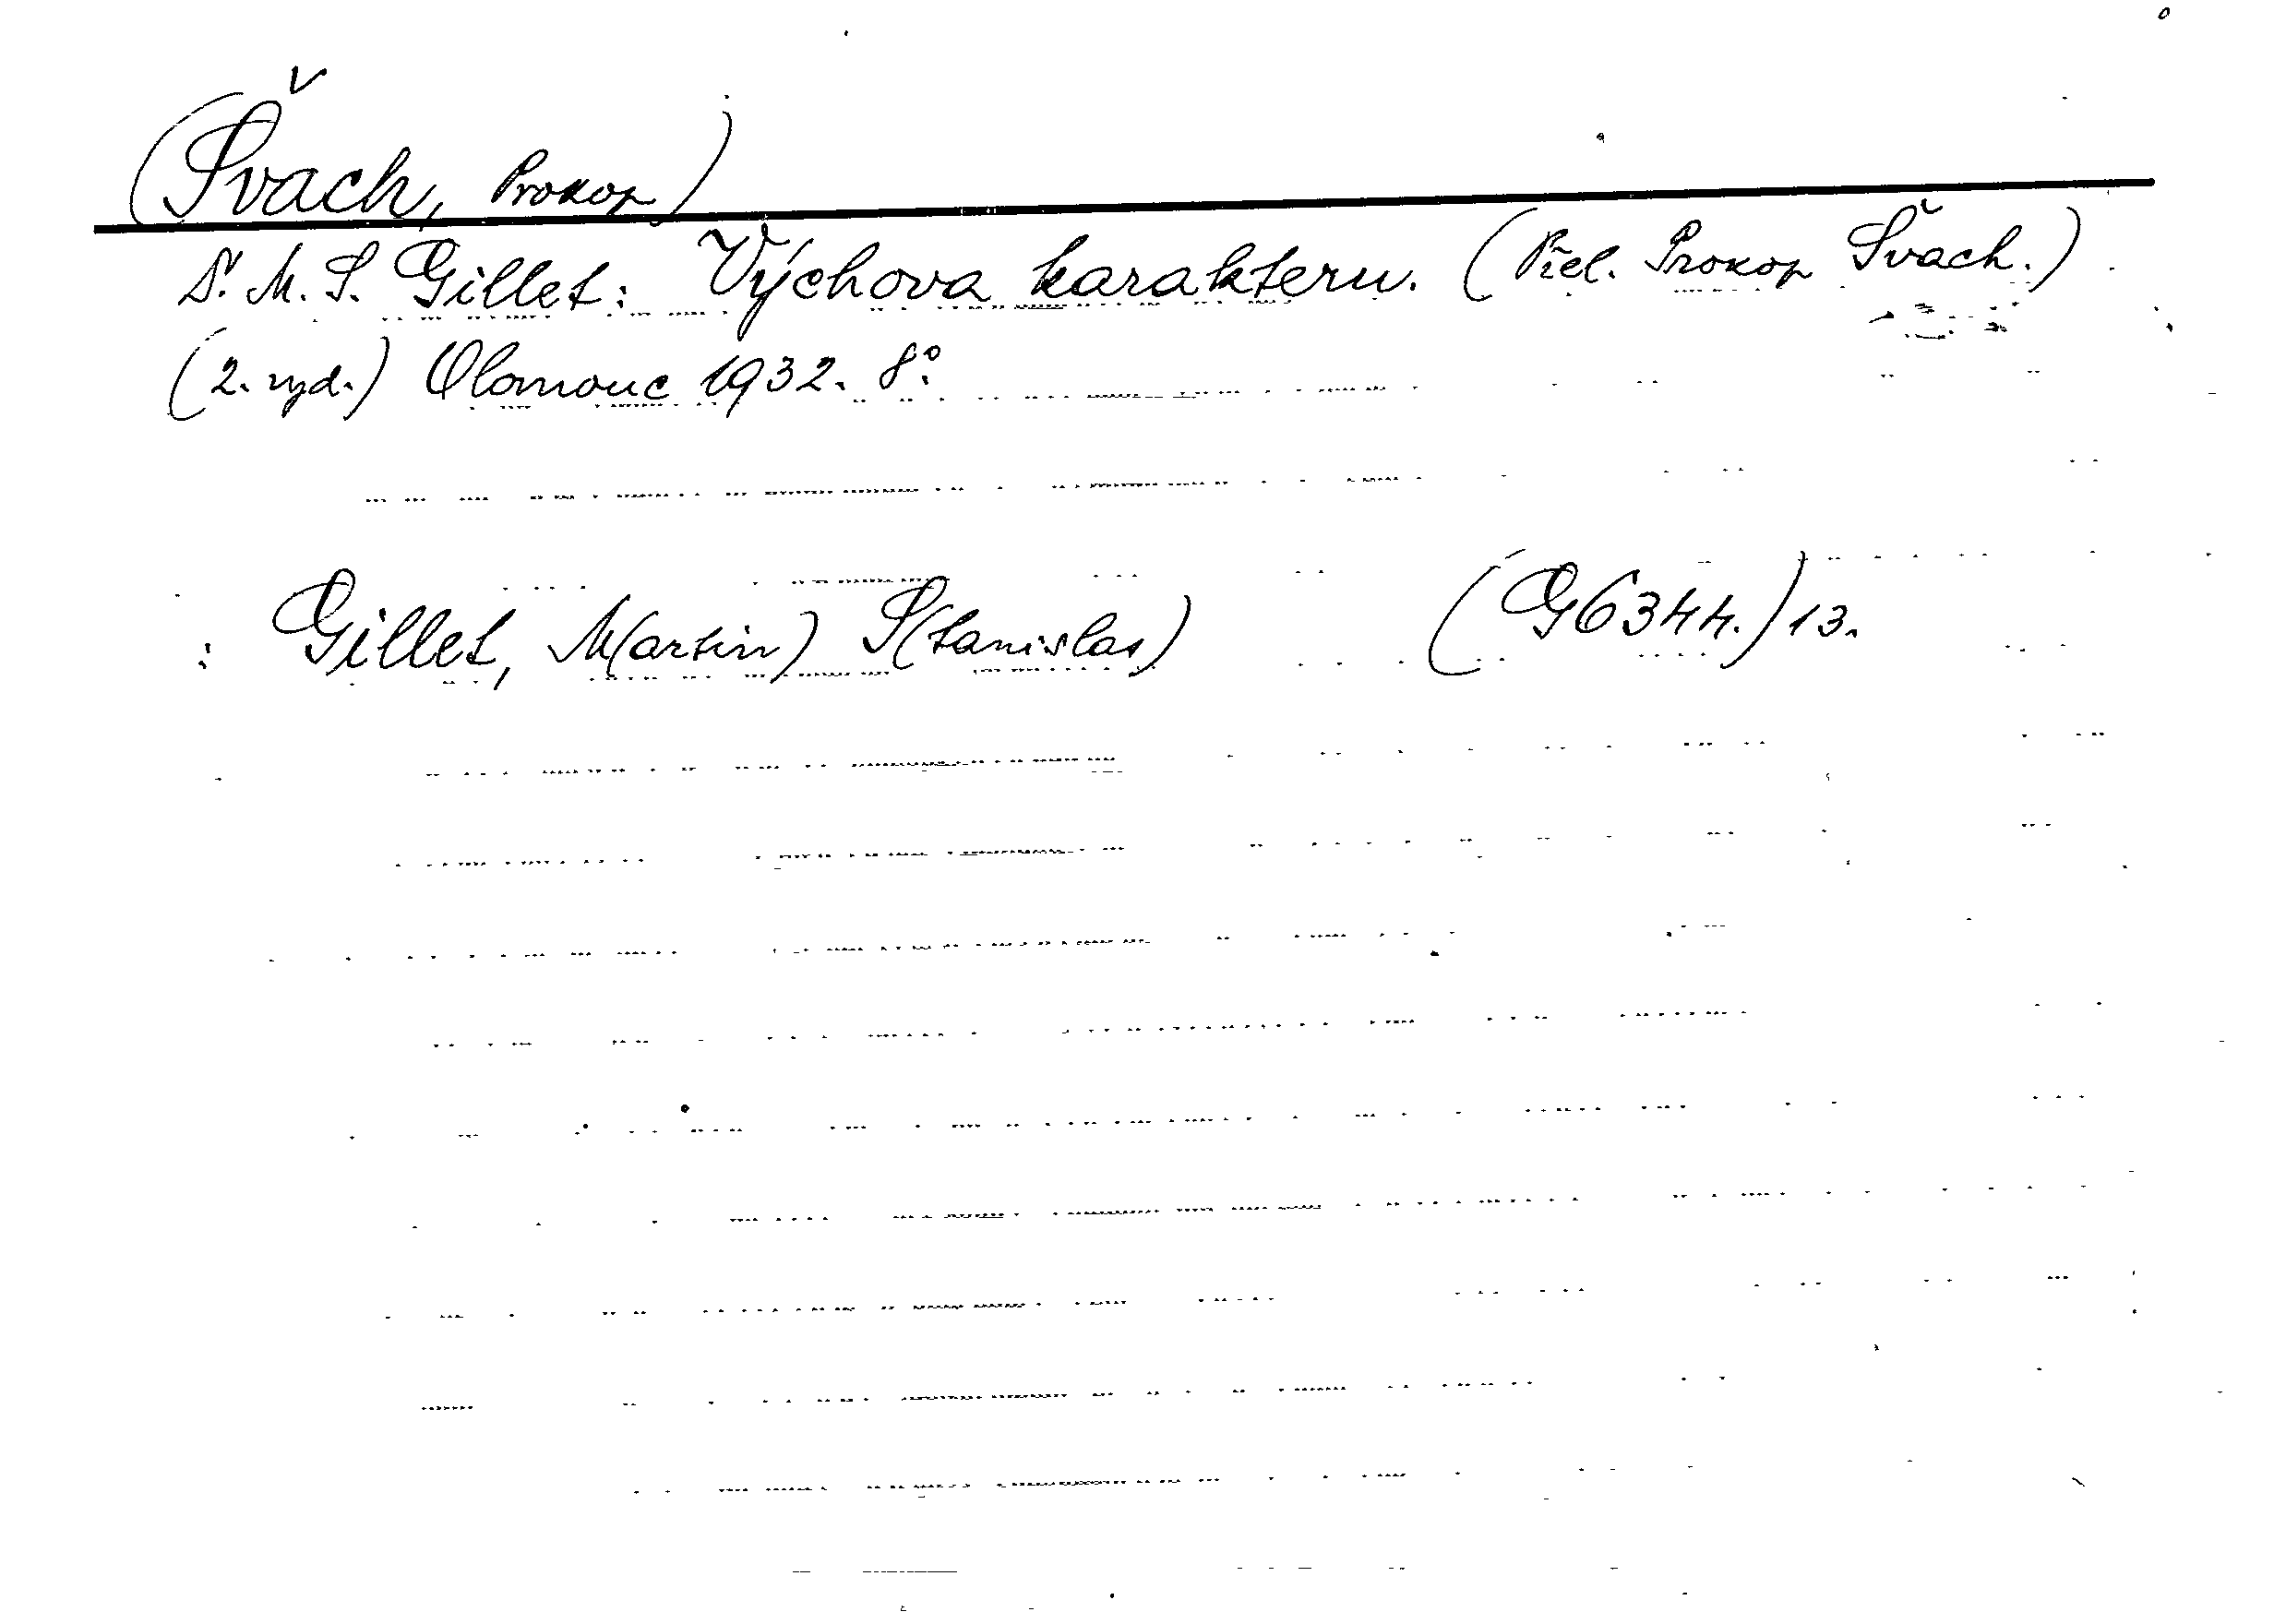 (Švach, Prokop)
S. M. S. Gillet: Výchova karakteru. (Přel. Prokop Švach.)
(2. vyd.) Olomouc 1932. 8°.
: Gillet, M(artin) S(tanislas) (G6344.) 13.